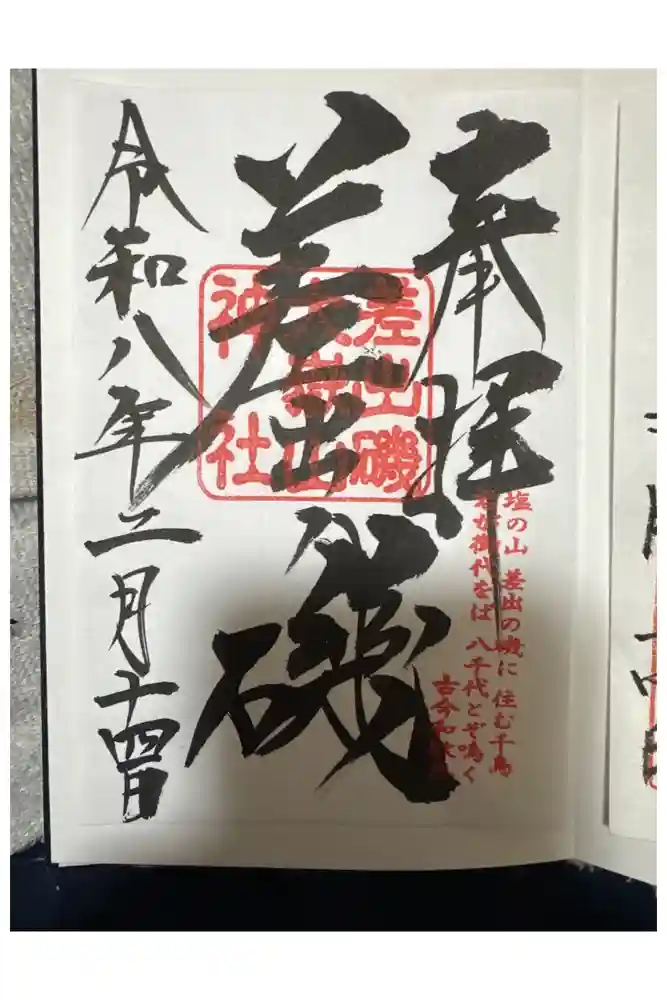 奉拝
塩の山 差出の磯に 住む千鳥
君が御代をば 八千代とぞ鳴く
古今和歌集
差出磯
差出磯
大嶽山
神社
令和八年二月十四日